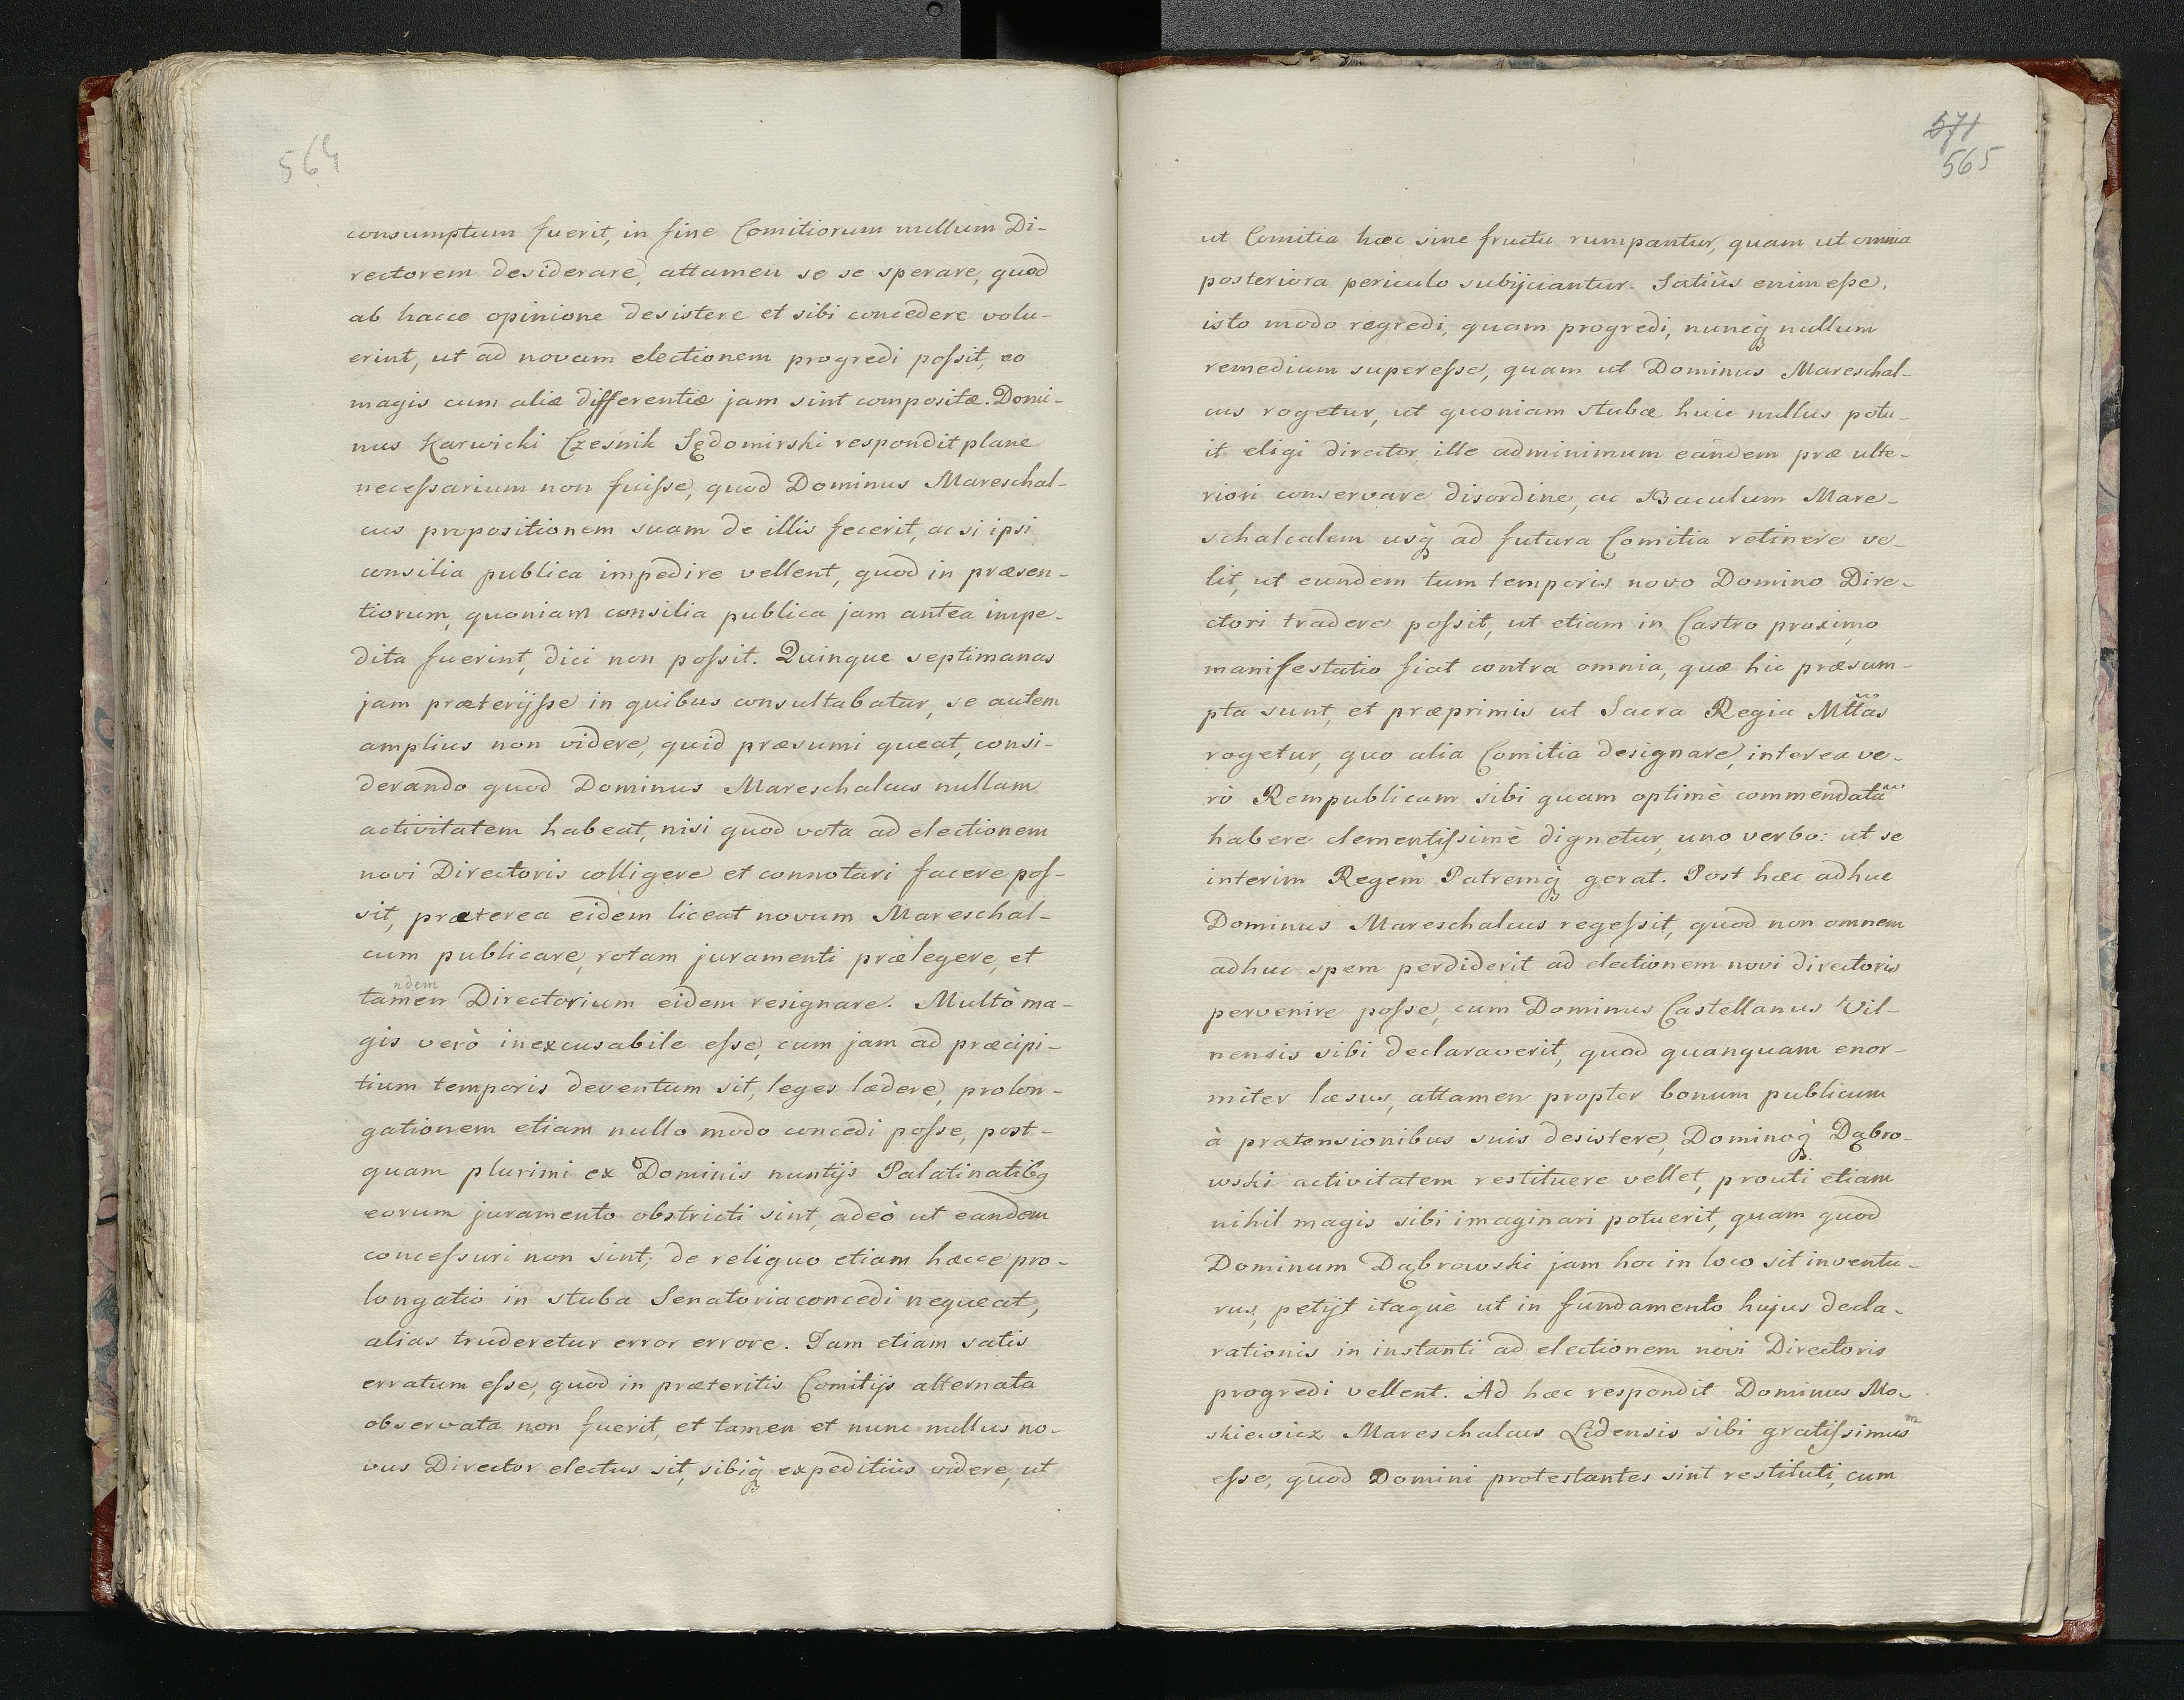 564
consumptum fuerit, in fine Comitiorum nullum Di-
rectorem desiderare, attamen se se sperare, quod
ab hacce opinione desistere et sibi concedere volu-
erint, ut ad novam electionem progredi poſsit, eo
magis cum aliæ differentiæ jam sint compositæ. Domi-
nus Karwicki Czesnik Sędomirski respondit plane
neceſsarium non fuiſse, quod Dominus Mareschal-
cus propositionem suam de illis fecerit, ac si ipsi
consilia publica impedire vellent, quod in præsen-
tiorum, quoniam consilia publica jam antea impe-
dita fuerint, dici non poſsit. Quinque septimanas
jam præterijſse in quibus consultabatur, se autem
amplius non videre, quid præsumi queat, consi-
derando quod Dominus Mareschalcus nullam
activitatem habeat, nisi quod vota ad electionem
novi Directoris colligere et connotari facere poſ-
sit, præterea eidem liceat novum Mareschal-
cum publicare, rotam juramenti prælegere, et
ndem
tamen Directorium eidem resignare. Multò ma-
gis verò inexcusabile eſse, cum jam ad præcipi-
tium temporis deventum sit, leges lædere, prolon-
gationem etiam nullo modo concedi poſse, post-
quam plurimi ex Dominis nuntijs Palatinatibq
eorum juramento obstricti sint, adeò ut eandem
conceſsuri non sint; de reliquo etiam hæcce pro-
longatio in stuba Senatoria concedi nequeat,
alias truderetur error errore. Jam etiam satis
erratum eſse, quòd in præteritis Comitijs alternata
observata non fuerit, et tamen et nunc nullus no-
vus Director electus sit, sibiq̀ expeditiùs videre, ut
571
565
ut Comitia hæc sine fructu rumpantur, quam ut omnia
posteriora periculo subijciantur. Satiùs enim eſse,
isto modo regredi, quam progredi, nuncq̀ nullum
remedium supereſse, quam ut Dominus Mareschal-
cus rogetur, ut quoniam stubæ huic nullus potu-
it eligi director ille adminimum eandem præ ulte-
riori conservare disordine, ac Baculum Mare-
schalcalem usq̀ ad futura Comitia retinere ve-
lit, ut eundem tum temporis novo Domino Dire-
ctori tradere poſsit, ut etiam in Castro proximo
manifestatio fiat contra omnia, quæ hic præsum-
pta sunt, et præprimis ut Sacra Regia Mttas
rogetur, quo alia Comitia designare, interea ve-
rò Rempublicam sibi quam optimè commendatã
habere clementiſsimè dignetur, uno verbo: ut se
interim Regem Patremq̀ gerat. Post hæc adhuc
Dominus Mareschalcus regeſsit, quod non omnem
adhuc spem perdiderit ad electionem novi directoris
pervenire poſse, cum Dominus Castellanus Vil-
nensis sibi declaraverit, quod quanquam enor-
miter læsus, attamen propter bonum publicum
à prætensionibus suis desistere, Dominoq̀ Dąbro-
wski activitatem restituere vellet, prouti etiam
nihil magis sibi imaginari potuerit, quam quod
Dominum Dąbrowski jam hoc in loco sit inventu-
rus, petijt itaquè ut in fundamento hujus decla-
rationis in instanti ad electionem novi Directoris
progredi vellent. Ad hæc respondit Dominus Mo-
skiewicz Mareschalcus Lidensis sibi gratiſsimus
m
eſse, quod Domini protestantes sint restituti, cum